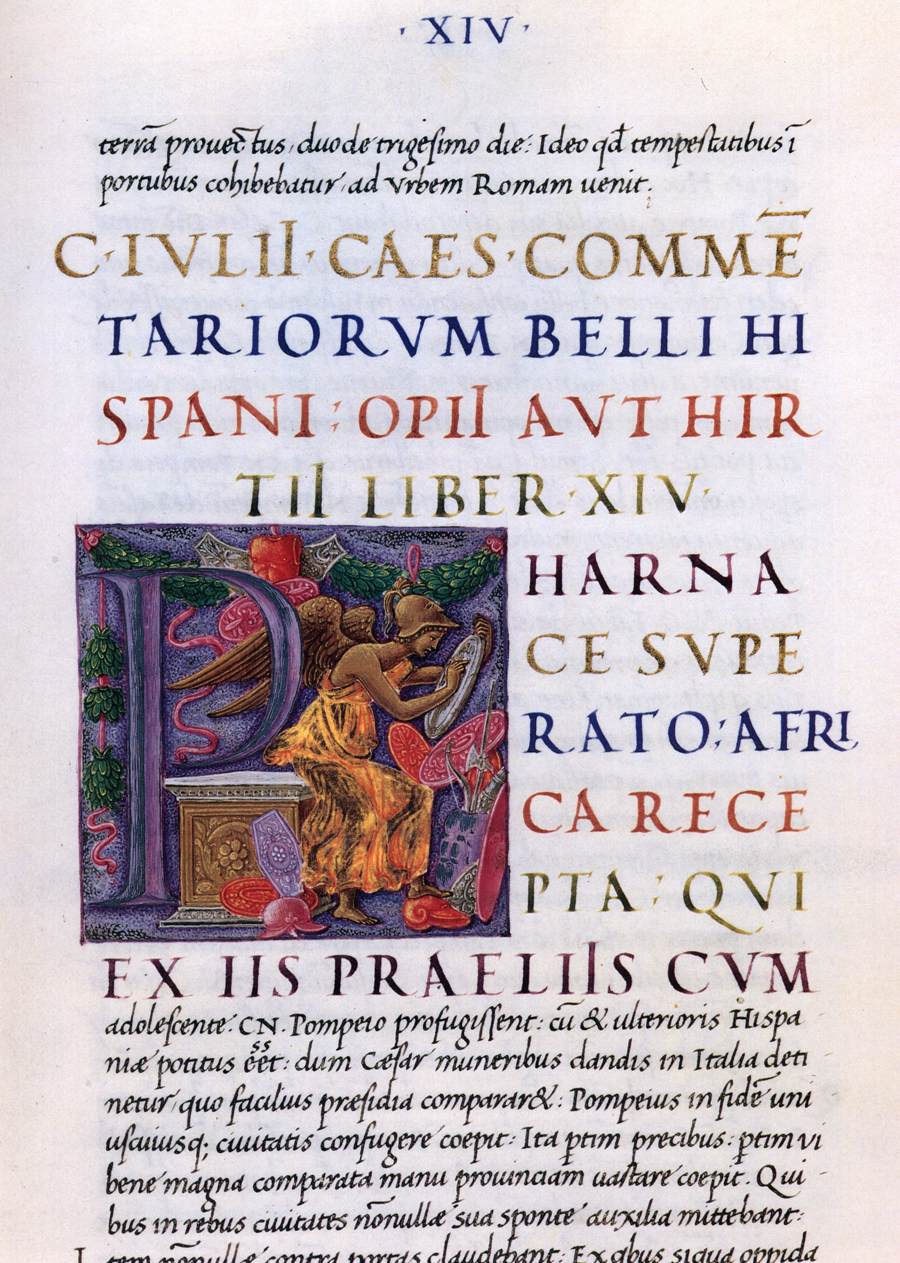 · XIV ·
terrā prouectus, duodetrigesimo die: Ideo qđ tempestatibus ī
portubus cohibebatur, ad Vrbem Romam uenit.
C·IVLII·CAES·COMMĒ
TARIORVM BELLI HI
SPANI: OPII AVT HIR
TII LIBER·XIV·
P HARNA
CE SVPE
RATO: AFRI
CA RECE
PTA: QVI
EX IIS PRAELIIS CVM
adolescente. CN. Pompeio profugissent: cū & ulterioris Hispa
niæ potitus : dum Cæsar muneribus dandis in Italia deti
netur, quo facilius præsidia comparar&: Pompeius in fidē uni
uscuiusq; ciuitatis confugere coepit: Ita ꝑtim precibus: ꝑtim vi
bene magna comparata manu prouinciam uastare coepit. Qui
bus in rebus ciuitates nōnullæ sua sponte auxilia mittebant:
I tem nōnullæ contra portas claudebant: Ex qbus siqua oppida